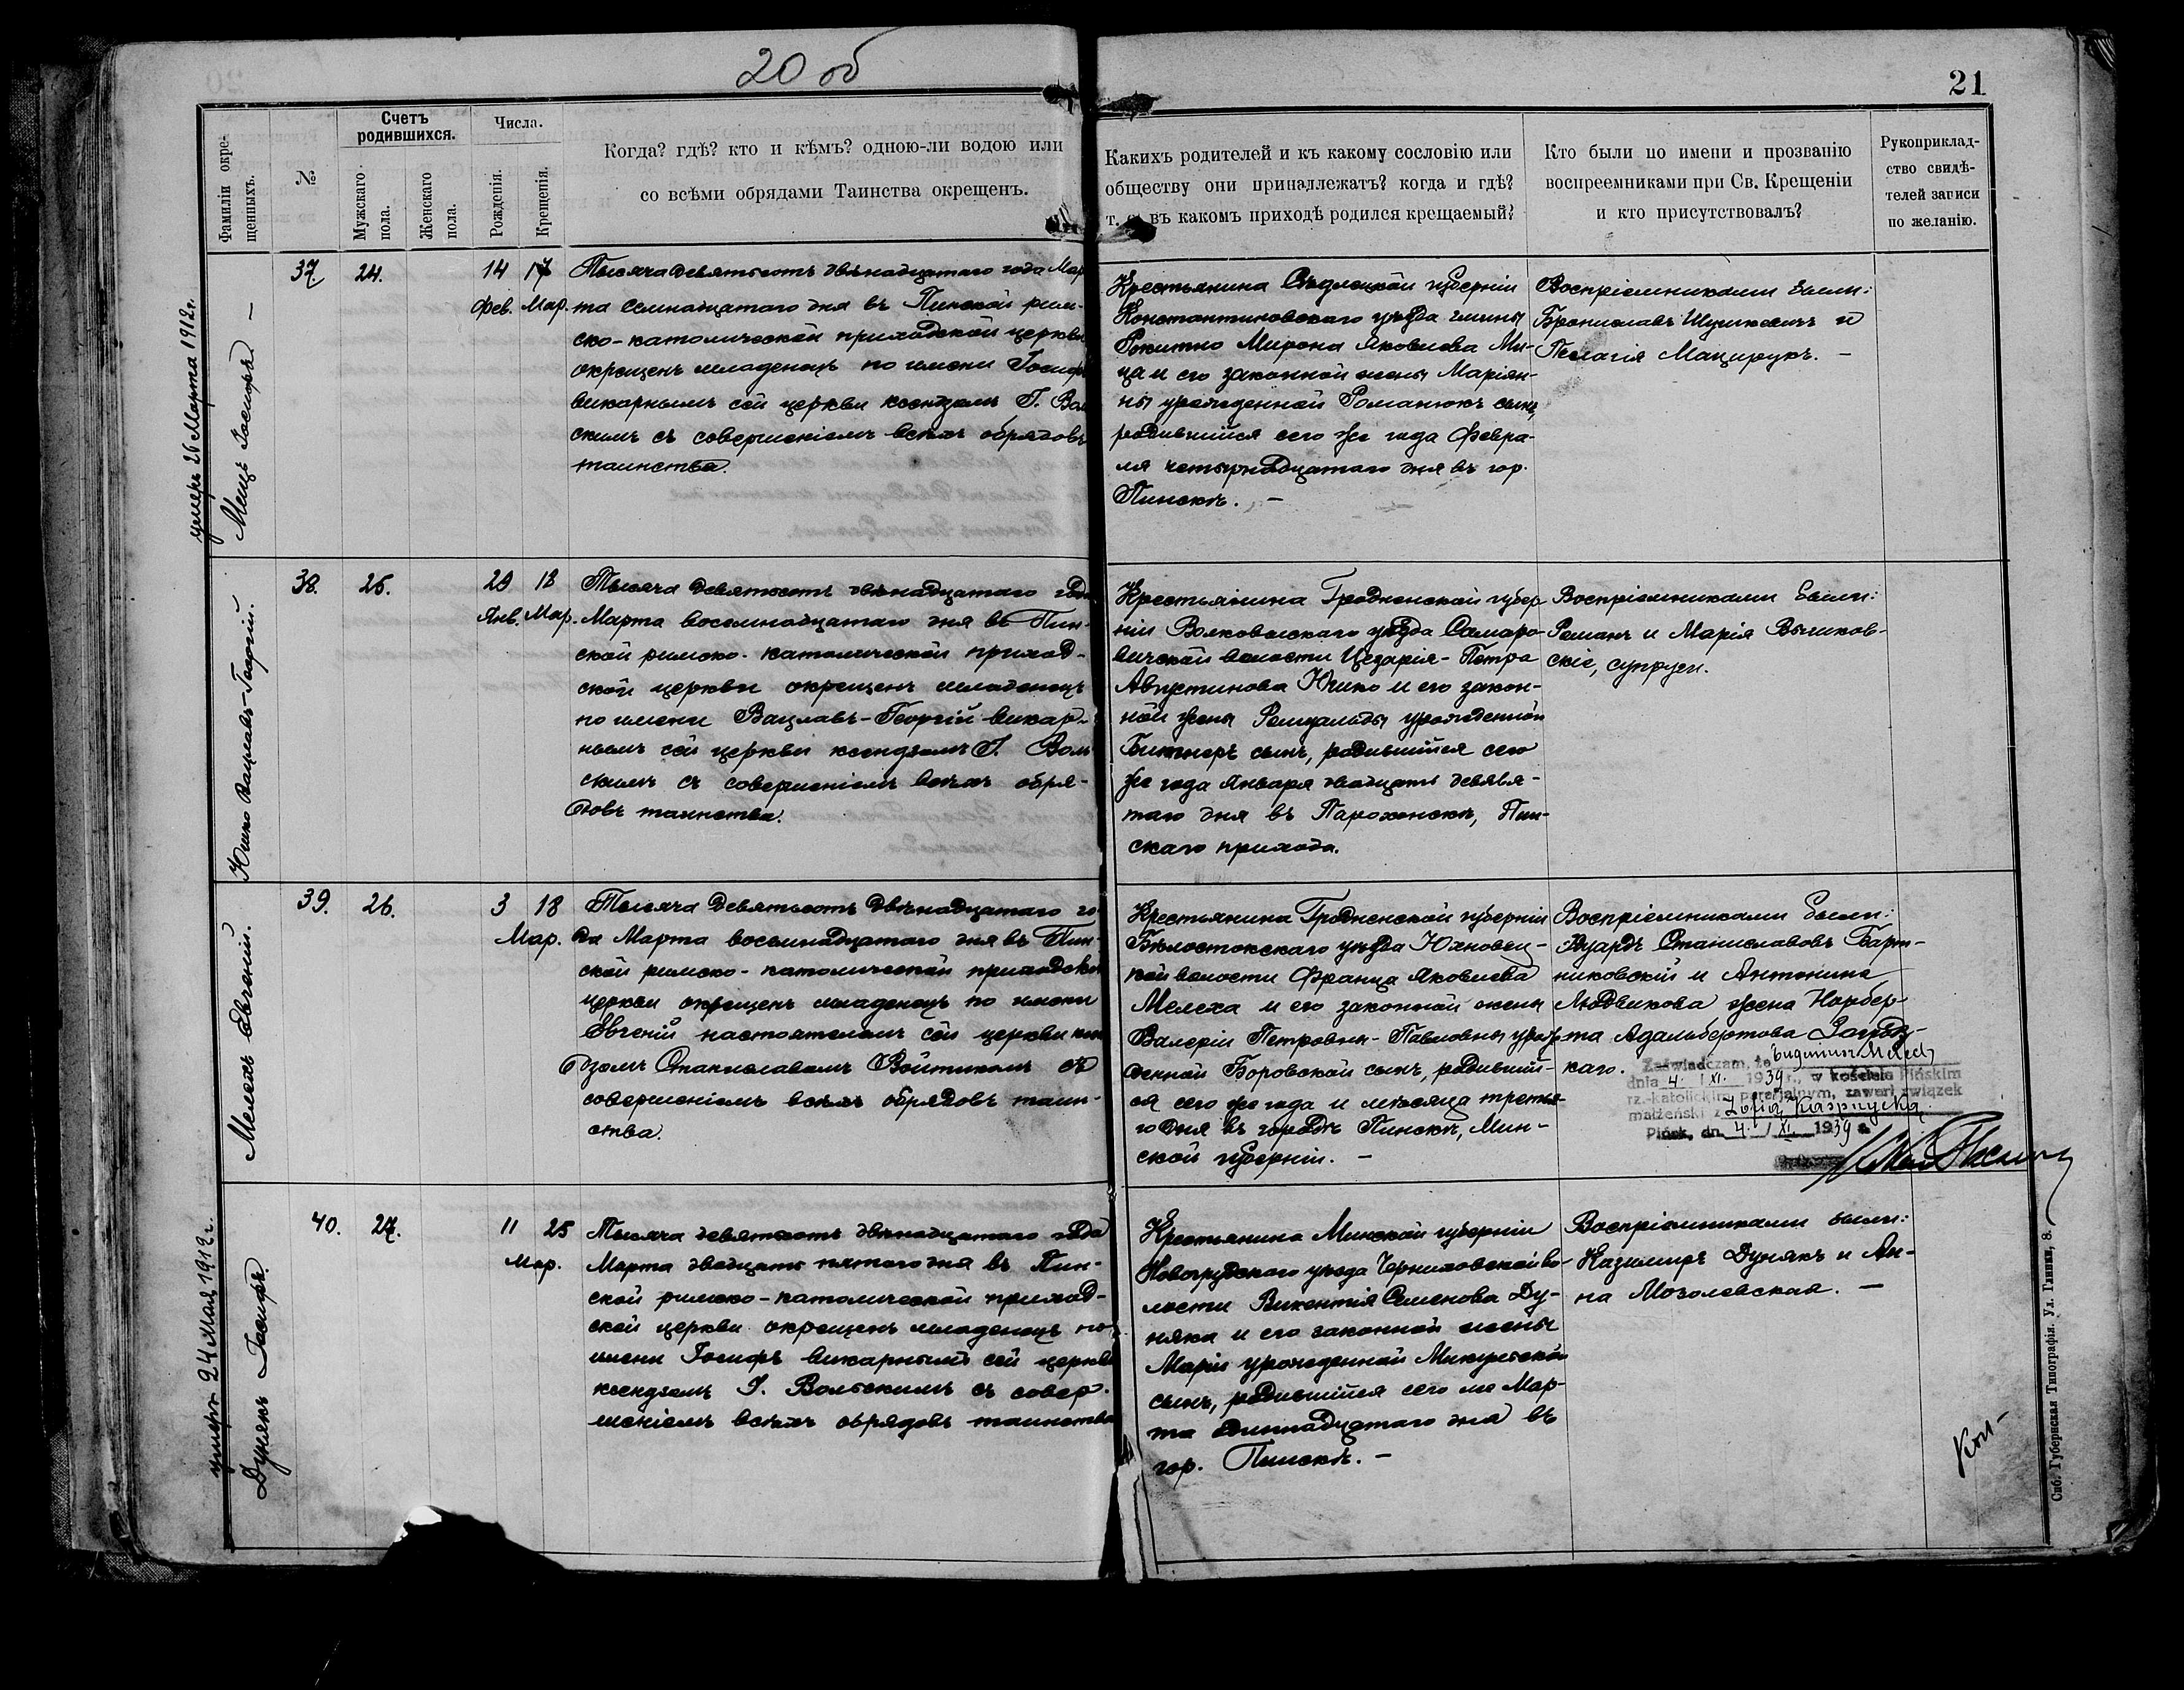 20 об
21
Фамиліи окре-
щенныхъ.
№
Счетъ
родившихся.
Мужскаго
пола.
Женскаго
пола.
Числа.
Рожденія.
Крещенія.
Когда? гдѣ? кто и кѣмъ? одною-ли водою или
со всѣми обрядами Таинства окрещенъ.
Какихъ родителей и къ какому сословію или
обществу они принадлежатъ? когда и гдѣ?
т. е. въ какомъ приходѣ родился крещаемый?
Кто были по имени и прозванію
воспреемниками при Св. Крещеніи
и кто присутствовалъ?
Рукоприклад-
ство свидѣ-
телей записи
по желанію.
умеръ 26 Марта 1912 г.
Мецъ Іосифъ —
37. 24.
14 17
Фев. Мар.
Тысяча девятьсотъ двѣнадцатаго года Мар
та семнадцатаго дня въ Пинской рим-
ско-католической приходской церкви
окрещенъ младенецъ по имени Іосифъ
викарнымъ сей церкви ксендзомъ І. Вол
скимъ съ совершеніемъ всѣхъ обрядовъ
таинства.
Крестьянина Сѣдлецкой губерніи
Константиновскаго уѣзда гмины
Рокитно Мирона Яковлева Ми-
ца и его законной жены Маріян-
ны урожденной Романюкъ сынъ,
родившійся сего же года Февра-
ля четырнадцатаго дня въ гор.
Пинскѣ. —
Воспріемниками были:
Брониславъ Шушкевичъ и
Пелагія Мацирукъ. —
Юшко Вацлавъ-Георгій.
38. 25.
29 18
Янв. Мар.
Тысяча девятьсотъ двѣнадцатаго года
Марта восемнадцатаго дня въ Пин-
ской римско-католической приход-
ской церкви окрещенъ младенецъ
по имени Вацлавъ-Георгій викар-
нымъ сей церкви ксендзомъ І. Вол
скимъ съ совершеніемъ всѣхъ обря-
довъ таинства.
Крестьянина Гродненской губер
ніи Волковыскаго уѣзда Самаро-
вичской волости Цезарія-Петра
Августинова Юшко и его закон-
ной жены Ромуальды урожденной
Битнеръ сынъ, родившійся сего
же года Января двадцать девя-
таго дня въ Парохонскѣ, Пин-
скаго прихода.
Воспріемниками были:
Романъ и Марія
скіе, супруги.
Мелехъ Евгеній.
39. 26.
3 18
Мар.
Тысяча девятьсотъ двѣнадцатаго го-
да Марта восемнадцатаго дня въ Пин-
ской римско-католической приходской
церкви окрещенъ младенецъ по имени
Евгеній настоятелемъ сей церкви ксен
дзомъ Станиславомъ Войтикомъ съ
совершеніемъ всѣхъ обрядовъ таин-
ства.
Крестьянина Гродненской губерніи
Бѣлостокскаго уѣзда Юхновец-
кой волости Франца Яковлева
Мелеха и его законной жены
Валеріи Петровны-Павловны урож-
денной Боровской сынъ, родивший-
ся сего же года и мѣсяца третья-
го дня въ городѣ Пинскѣ, Мин-
ской губерніи. —
Воспріемниками были:
Эдуардъ Станиславовъ Барт-
никовскій и Антонина
Людвикова жена Норбер-
та Адальбертова
каго.
Zaświadczam, że Eugeniusz Melech
dnia 4. XI. 1939 r., w kościele Pińskim
rz.-katolickim parafjalnym, zawarł związek
małżeński z Zofią Kasprzycką
Pińsk, dn. 4. / XI. 1939 r.
умеръ 24 Мая 1912 г.
Дунякъ Іосифъ.
40. 27.
11 25
Мар.
Тысяча девятьсотъ двѣнадцатаго года
Марта двадцать пятаго дня въ Пин-
ской римско-католической приход-
ской церкви окрещенъ младенецъ по
имени Іосифъ викарнымъ сей церкви
ксендзомъ І. Вольскимъ съ совер-
шеніемъ всѣхъ обрядовъ таинства
Крестьянина Минской губерніи
Новогрудскаго уѣзда Черниховской во-
лости Викентія Семенова Ду-
няка и его законной жены
Маріи урожденной Микульской
сынъ, родившійся сего же Мар-
та одиннадцатаго дня въ
гор. Пинскѣ. —
Воспріемниками были:
Казимиръ Дунякъ и Ан-
на Моголевская. —
Спб. Губернская Типографія. Ул. Глинки, 8.